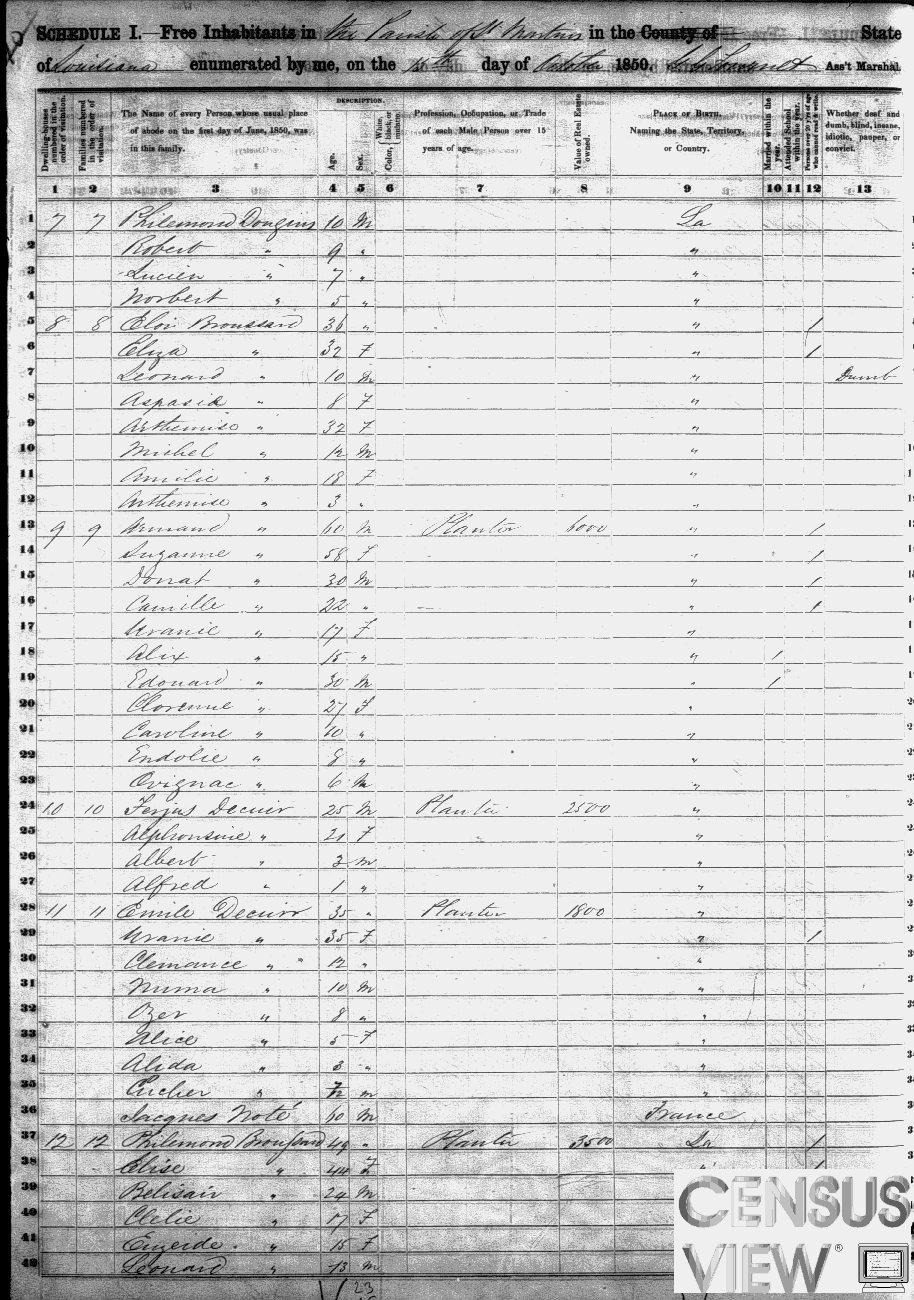 SCHEDULE I.—Free Inhabitants in the Parish of St Martin in the County of State
of Louisiana enumerated by me, on the day of October 1850. Ass't Marshal.
Dwelling-houses numbered in the order of visitation.
Families numbered in the order of visitation.
The Name of every Person whose usual place of abode on the first day of June, 1850, was in this family.
DESCRIPTION.
Age.
Sex.
Color, White, black, or mulatto.
Profession, Occupation, or Trade of each Male Person over 15 years of age.
Value of Real Estate owned.
PLACE OF BIRTH, Naming the State, Territory, or Country.
Married within the year.
Attended School within the year.
Persons over 20 y'rs of age who cannot read & write.
Whether deaf and dumb, blind, insane, idiotic, pauper, or convict.
1 2 3 4 5 6 7 8 9 10 11 12 13
1 7 7 Philemond Dougins 10 M La
2 Robert " 9 " "
3 Lucien " 7 " "
4 Norbert " 5 " "
5 8 8 Eloi Broussard 36 " " /
6 Eliza " 32 F " /
7 Leonard " 10 M " Dumb
8 Aspasia " 8 F "
9 Arthemise " 32 F "
10 Michel " 12 M "
11 Amilie " 18 F "
12 Arthemise " 3 " "
13 9 9 Armand " 60 M Planter 6000 " /
14 Suzanne " 58 F " /
15 Donat " 30 M " /
16 Camille " 22 " — " /
17 Uranie " 17 F "
18 Alix " 15 " " /
19 Edouard " 30 M " /
20 " 27 F "
21 Caroline " 10 " "
22 Endolie " 8 " "
23 Ovignac " 6 M "
24 10 10 Ferjus Decuir 25 M Planter 2500 "
25 Alphonsine " 21 F "
26 Albert " 3 M "
27 Alfred " 1 " "
28 11 11 Emile Decuir 35 " Planter 1800 "
29 Uranie " 35 F " /
30 Clemance " 12 " "
31 Numa " 10 M "
32 Ozer " 8 " "
33 Alice " 5 F "
34 Alida " 3 " "
35 " m "
36 Jacques Noté 60 M France
37 12 12 Philemond Broussard 49 " Planter 3500 La /
38 Elise " 44 F " /
39 Belisair " 24 M
40 Clelie " 17 F
41 " 15 F
42 Leonard " 13 M
23
CENSUS
VIEW®